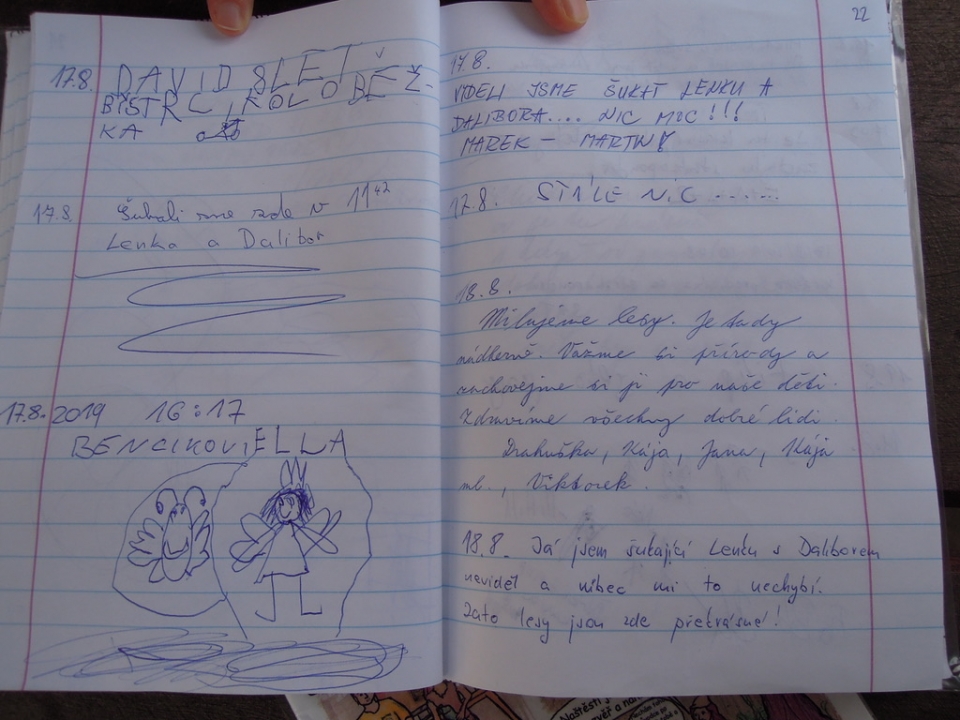 17.8. DAVID SLET
BYSTRC, KOLOBĚŽ-
KA
17.8. Šukali sme zde v 11 42
Lenka a Dalibor
17.8.2019 16:17
BENCIKOVI ELLA
22
17.8.
VIDELI JSME ŠUKAT LENKU A
DALIBORA.... NIC MOC!!!
MAREK – MARTIN
17.8. STÁLE NIC ......
18.8.
Milujeme lesy. Je tady
nádherně. Važme si přírody a
zachovejme si ji pro naše děti.
Zdravíme všechny dobré lidi.
Drahuška, Kája, Jana, Kája
ml., Viktorek.
18.8. Já jsem šukající Lenku s Daliborem
neviděl a vůbec mi to nechybí.
Zato lesy jsou zde překrásné!